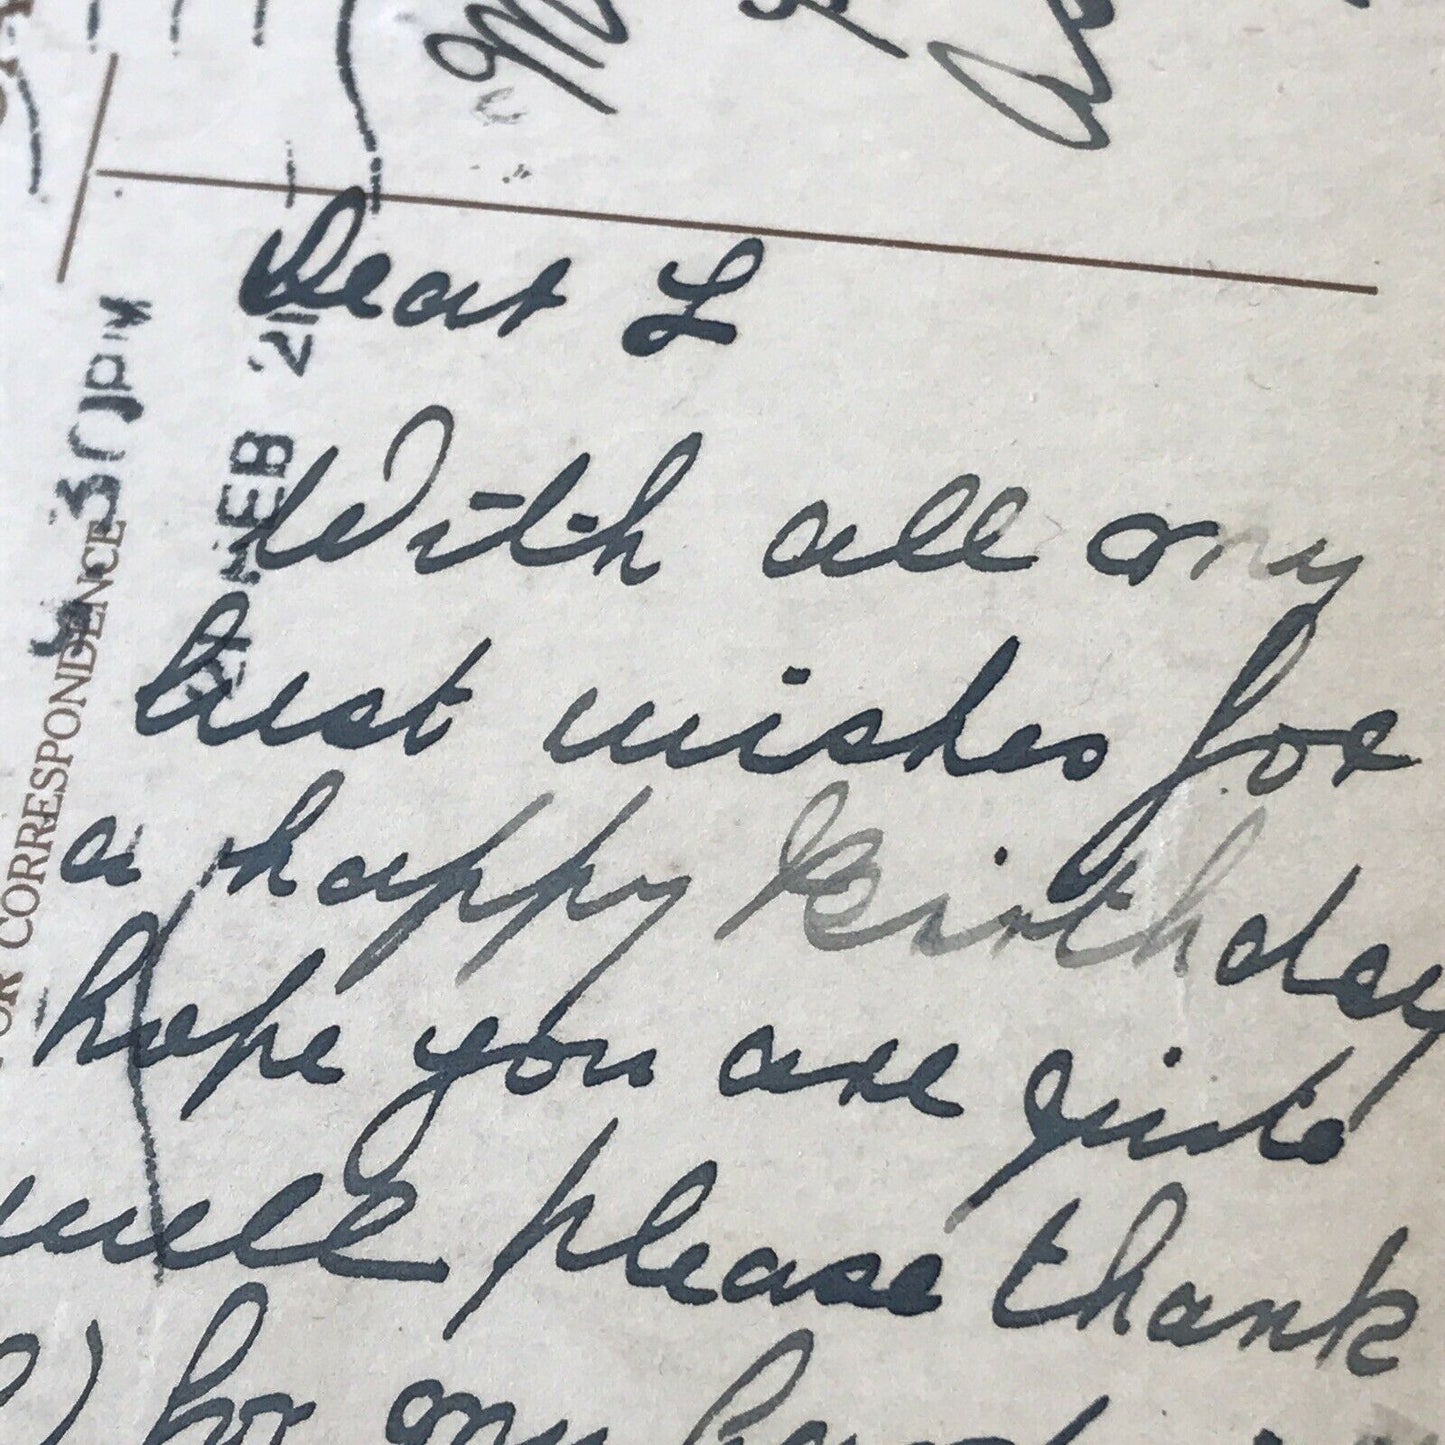 Dear L
With all my
best wishes for
a happy Birthday
hope you are quite
well please thank
for my
FOR CORRESPONDENCE
30 PM
FEB 21